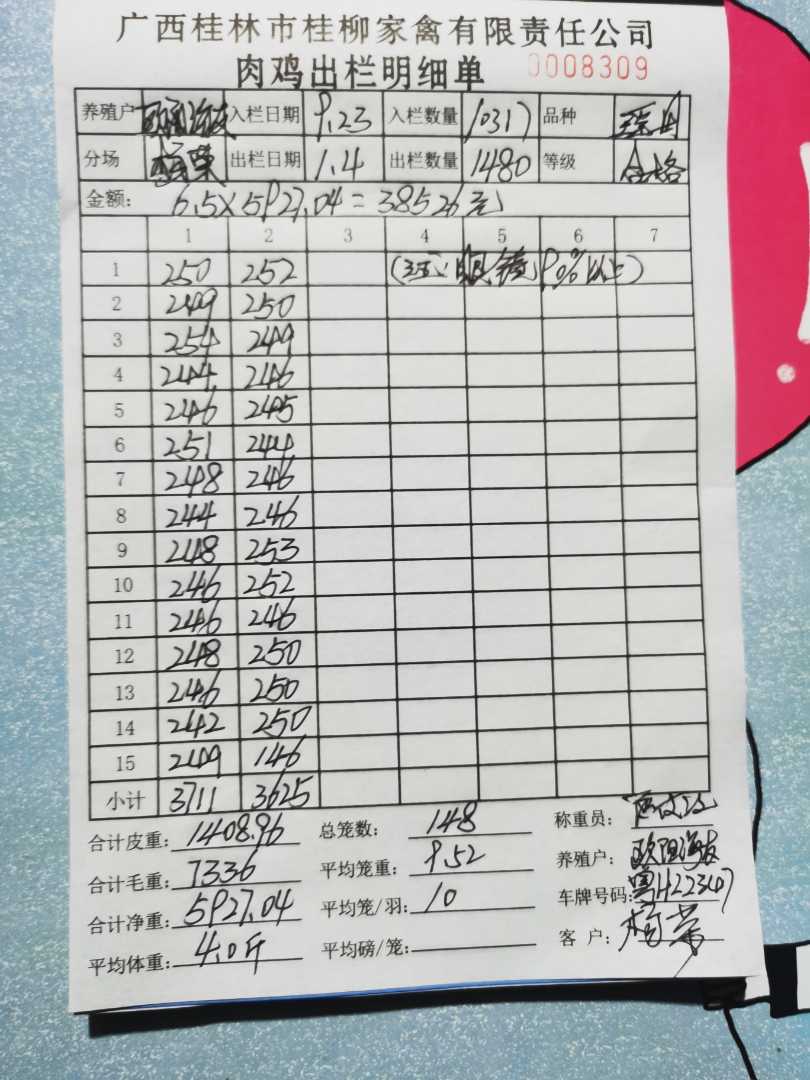 广西桂林市桂柳家禽有限责任公司
肉鸡出栏明细单 0008309
养殖户 入栏日期 9.23 入栏数量 10317 品种
分场 出栏日期 1.4 出栏数量 1480 等级 合格
金额: 6.5×5927.04=38526元
1 2 3 4 5 6 7
1 250 252 眼镜90%以上)
2 249 250
3 254 249
4 244 246
5 246 245
6 251 244
7 248 246
8 244 246
9 248 253
10 246 252
11 246 246
12 248 250
13 246 250
14 242 250
15 249 146
小计 3711 3625
合计皮重: 1408.96 总笼数: 148 称重员:
合计毛重: 7336 平均笼重: 9.52 养殖户: 欧阳海友
合计净重: 5927.04 平均笼/羽: 10 车牌号码: 粤H22347
平均体重: 4.0斤 平均磅/笼: 客户: 杨荣